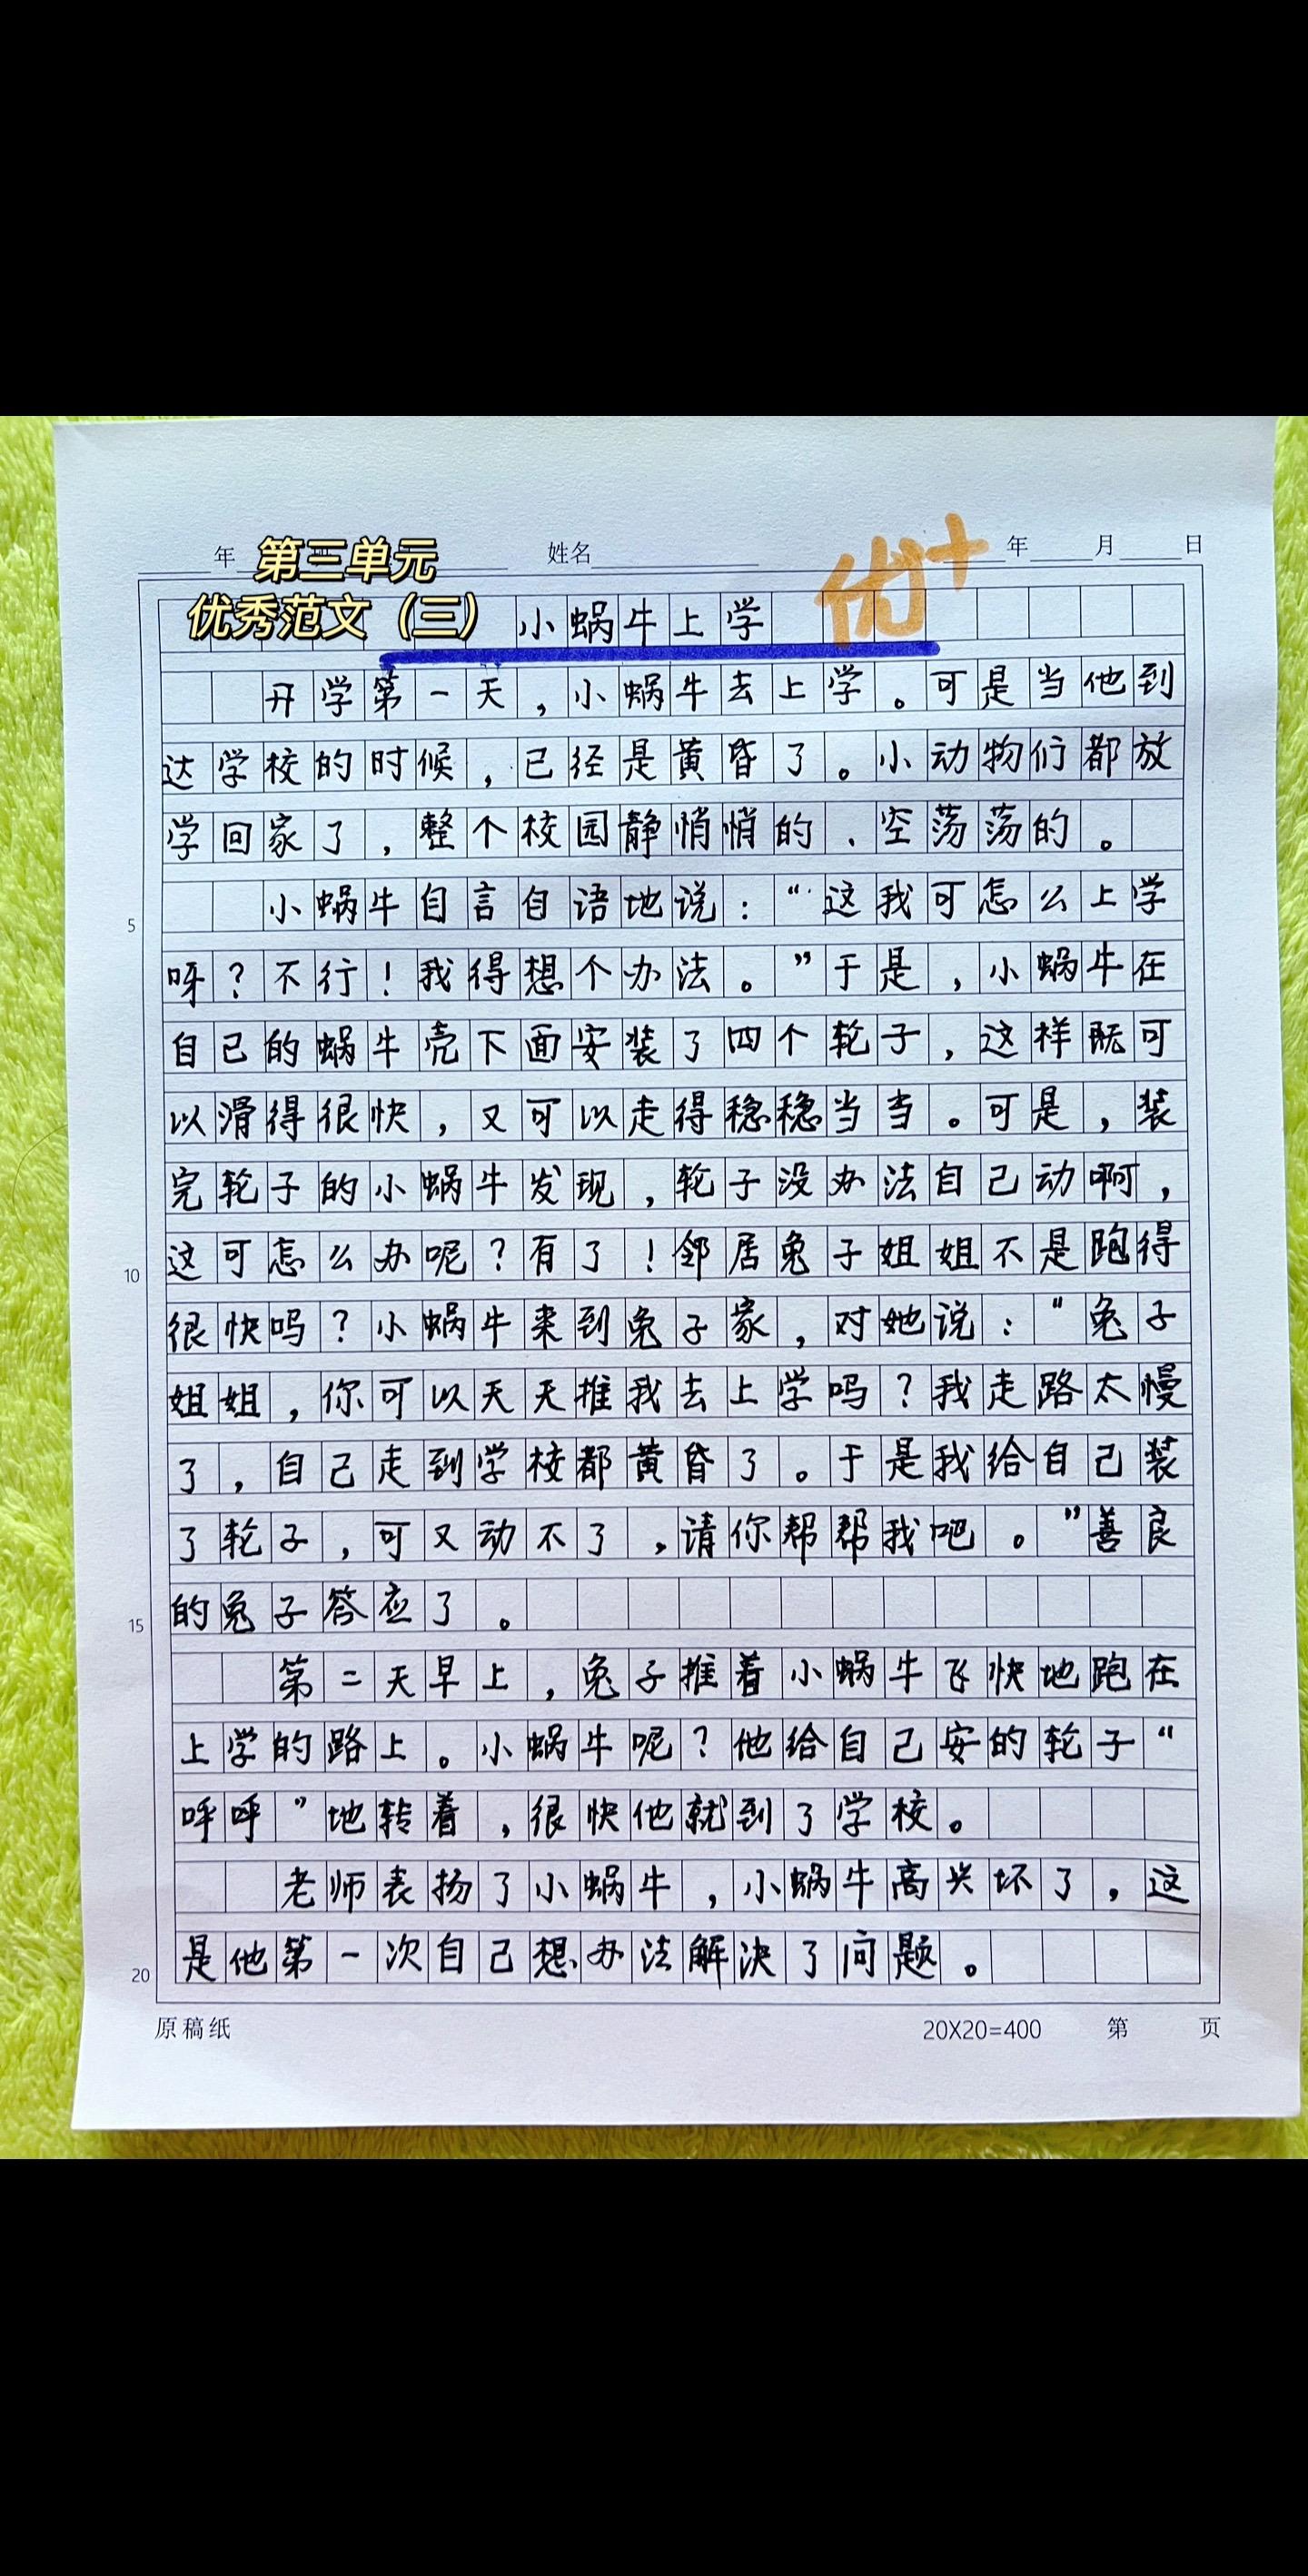 年 第三单元 姓名 年 月 日
优秀范文（三） 小蜗牛上学 优+
开学第一天，小蜗牛去上学。可是当他到
达学校的时候，已经是黄昏了。小动物们都放
学回家了，整个校园静悄悄的、空荡荡的。
5 小蜗牛自言自语地说：“这我可怎么上学
呀？不行！我得想个办法。”于是，小蜗牛在
自己的蜗牛壳下面安装了四个轮子，这样既可
以滑得很快，又可以走得稳稳当当。可是，装
完轮子的小蜗牛发现，轮子没办法自己动啊，
10 这可怎么办呢？有了！邻居兔子姐姐不是跑得
很快吗？小蜗牛来到兔子家，对她说：“兔子
姐姐，你可以天天推我去上学吗？我走路太慢
了，自己走到学校都黄昏了。于是我给自己装
了轮子，可又动不了，请你帮帮我吧。”善良
15 的兔子答应了。
第二天早上，兔子推着小蜗牛飞快地跑在
上学的路上。小蜗牛呢？他给自己安的轮子“
呼呼”地转着，很快他就到了学校。
老师表扬了小蜗牛，小蜗牛高兴坏了，这
20 是他第一次自己想办法解决了问题。
原稿纸 20X20=400 第 页